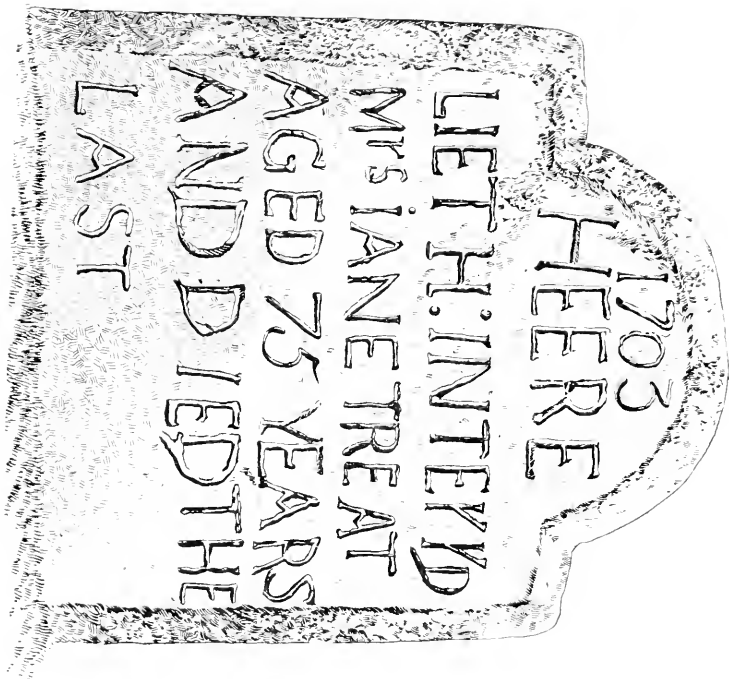 1703
HEERE
LIETH:INTERD
Mrs iANE TREAT
AGED 75 YEARS
AND DIED THE
LAST